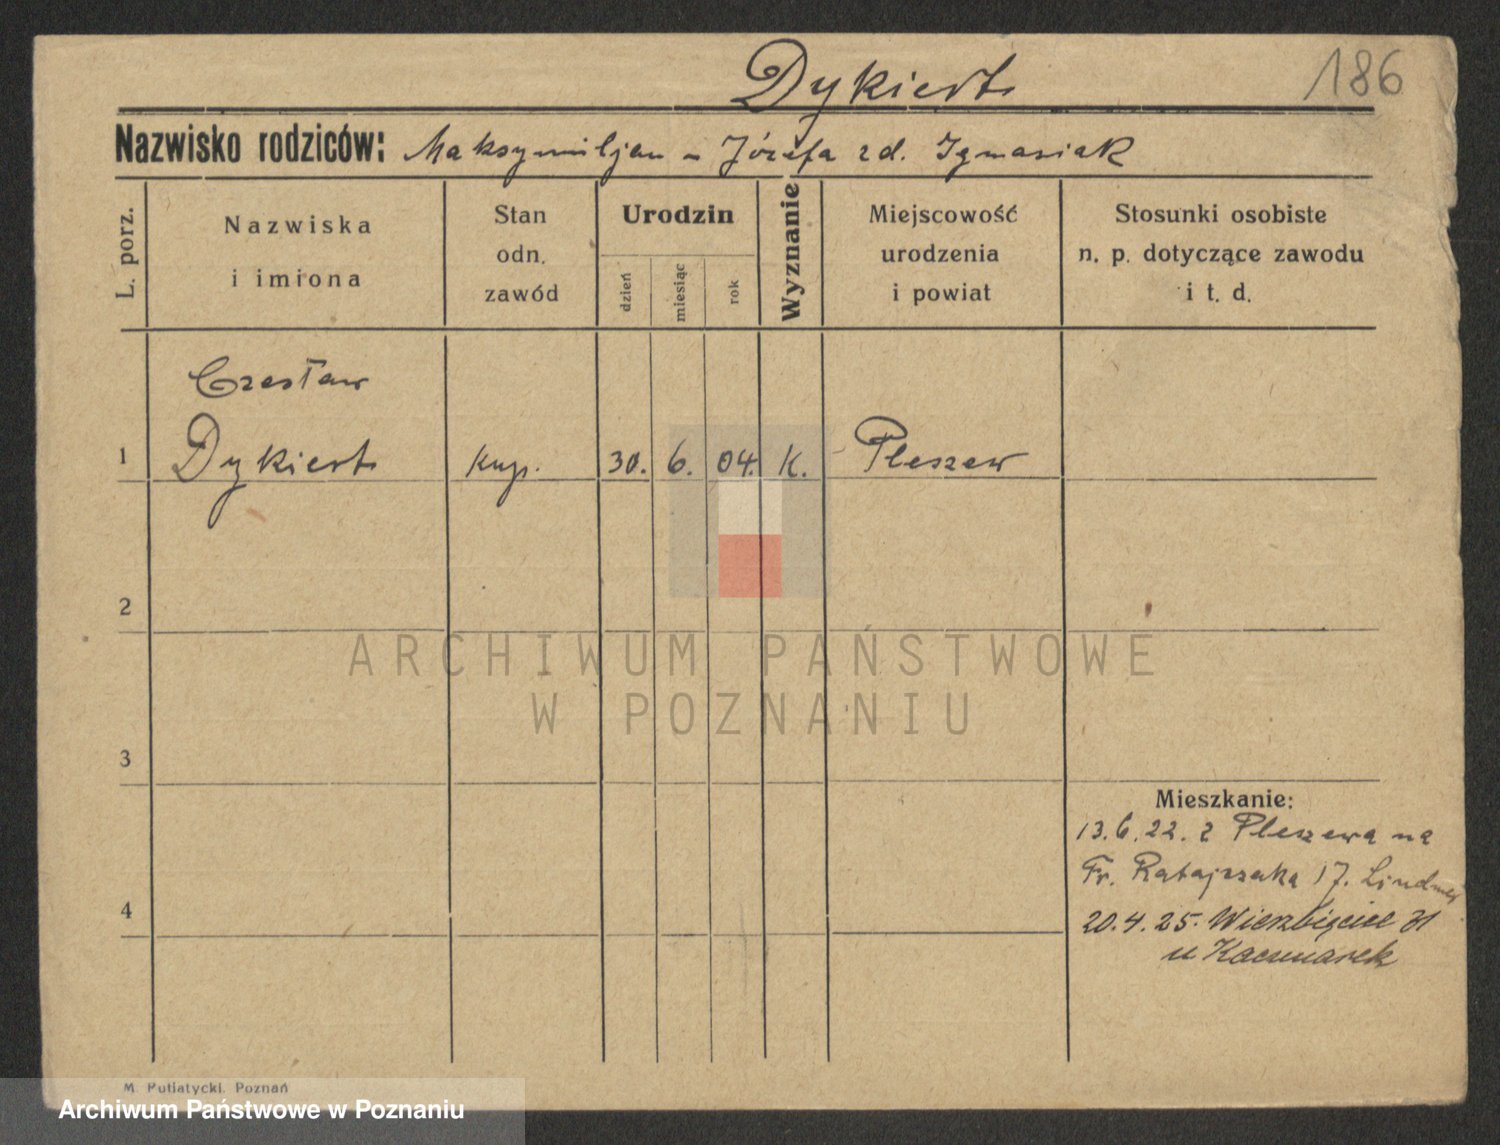 Dykiert 186
Nazwisko rodziców: Maksymiljan - Józefa zd. Ignasiak
L. porz.
Nazwiska
i imiona
Stan
odn.
zawód
Urodzin
dzień
miesiąc
rok
Wyznanie
Miejscowość
urodzenia
i powiat
Stosunki osobiste
n. p. dotyczące zawodu
i t. d.
Czesław
1 Dykiert kup. 30. 6. 04. K. Pleszew
2
ARCHIWUM PAŃSTWOWE
W POZNANIU
3
Mieszkanie:
13.6.22. z Pleszewa na
Fr. Ratajczaka 17.
4
20.4.25. Wierzbięcice 31
u Kaczmarek
M. Putiatycki, Poznań
Archiwum Państwowe w Poznaniu